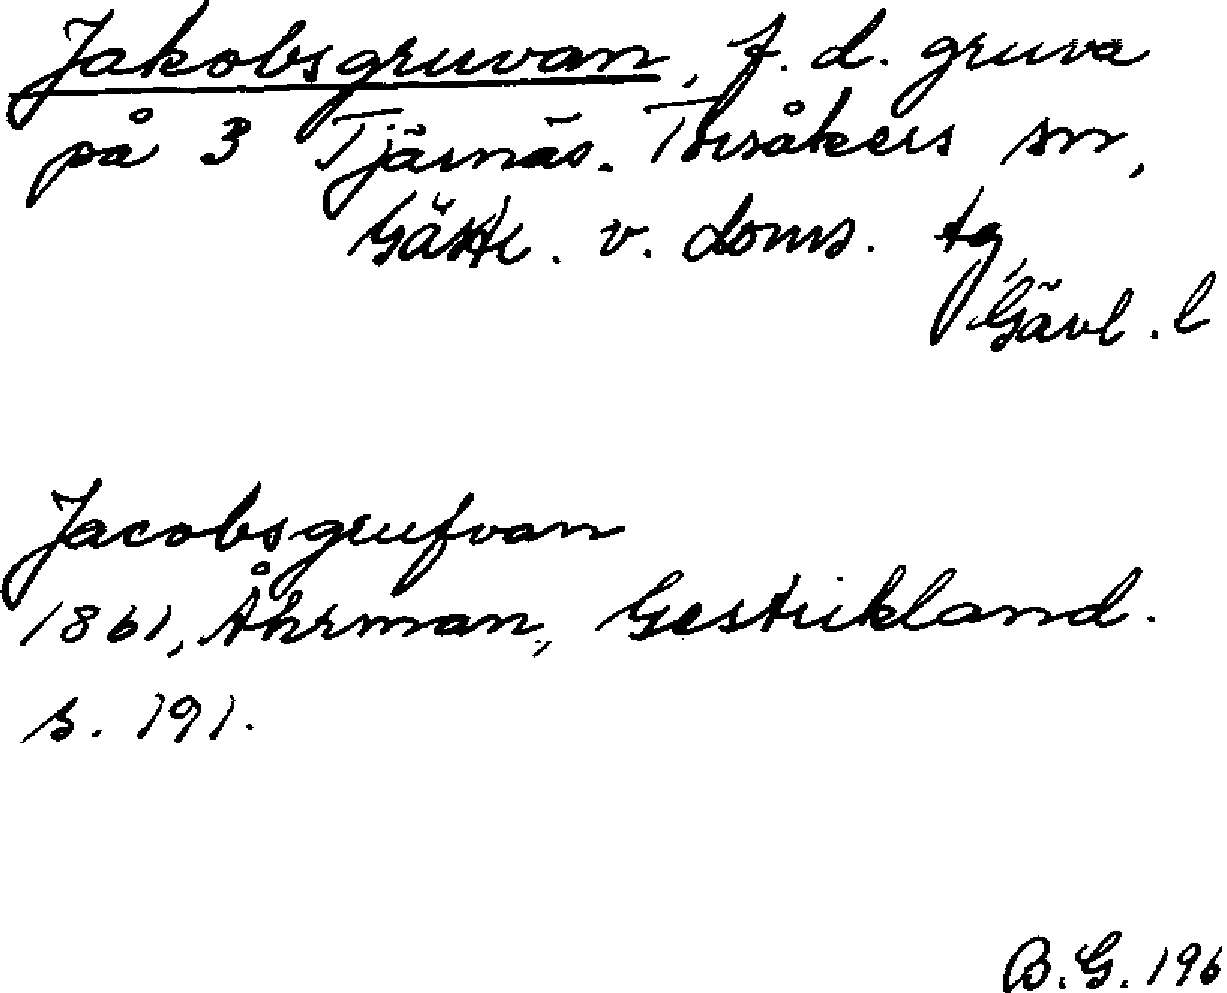 Jakobsgruvan, f.d. gruva
på 3 Tjärnäs. Torsåkers sn,
Gästr. v. doms. tg,
Gävl. l
Jacobsgrufvan
1861, Åhrman, Gestrikland.
s. 191.
B.G. 196